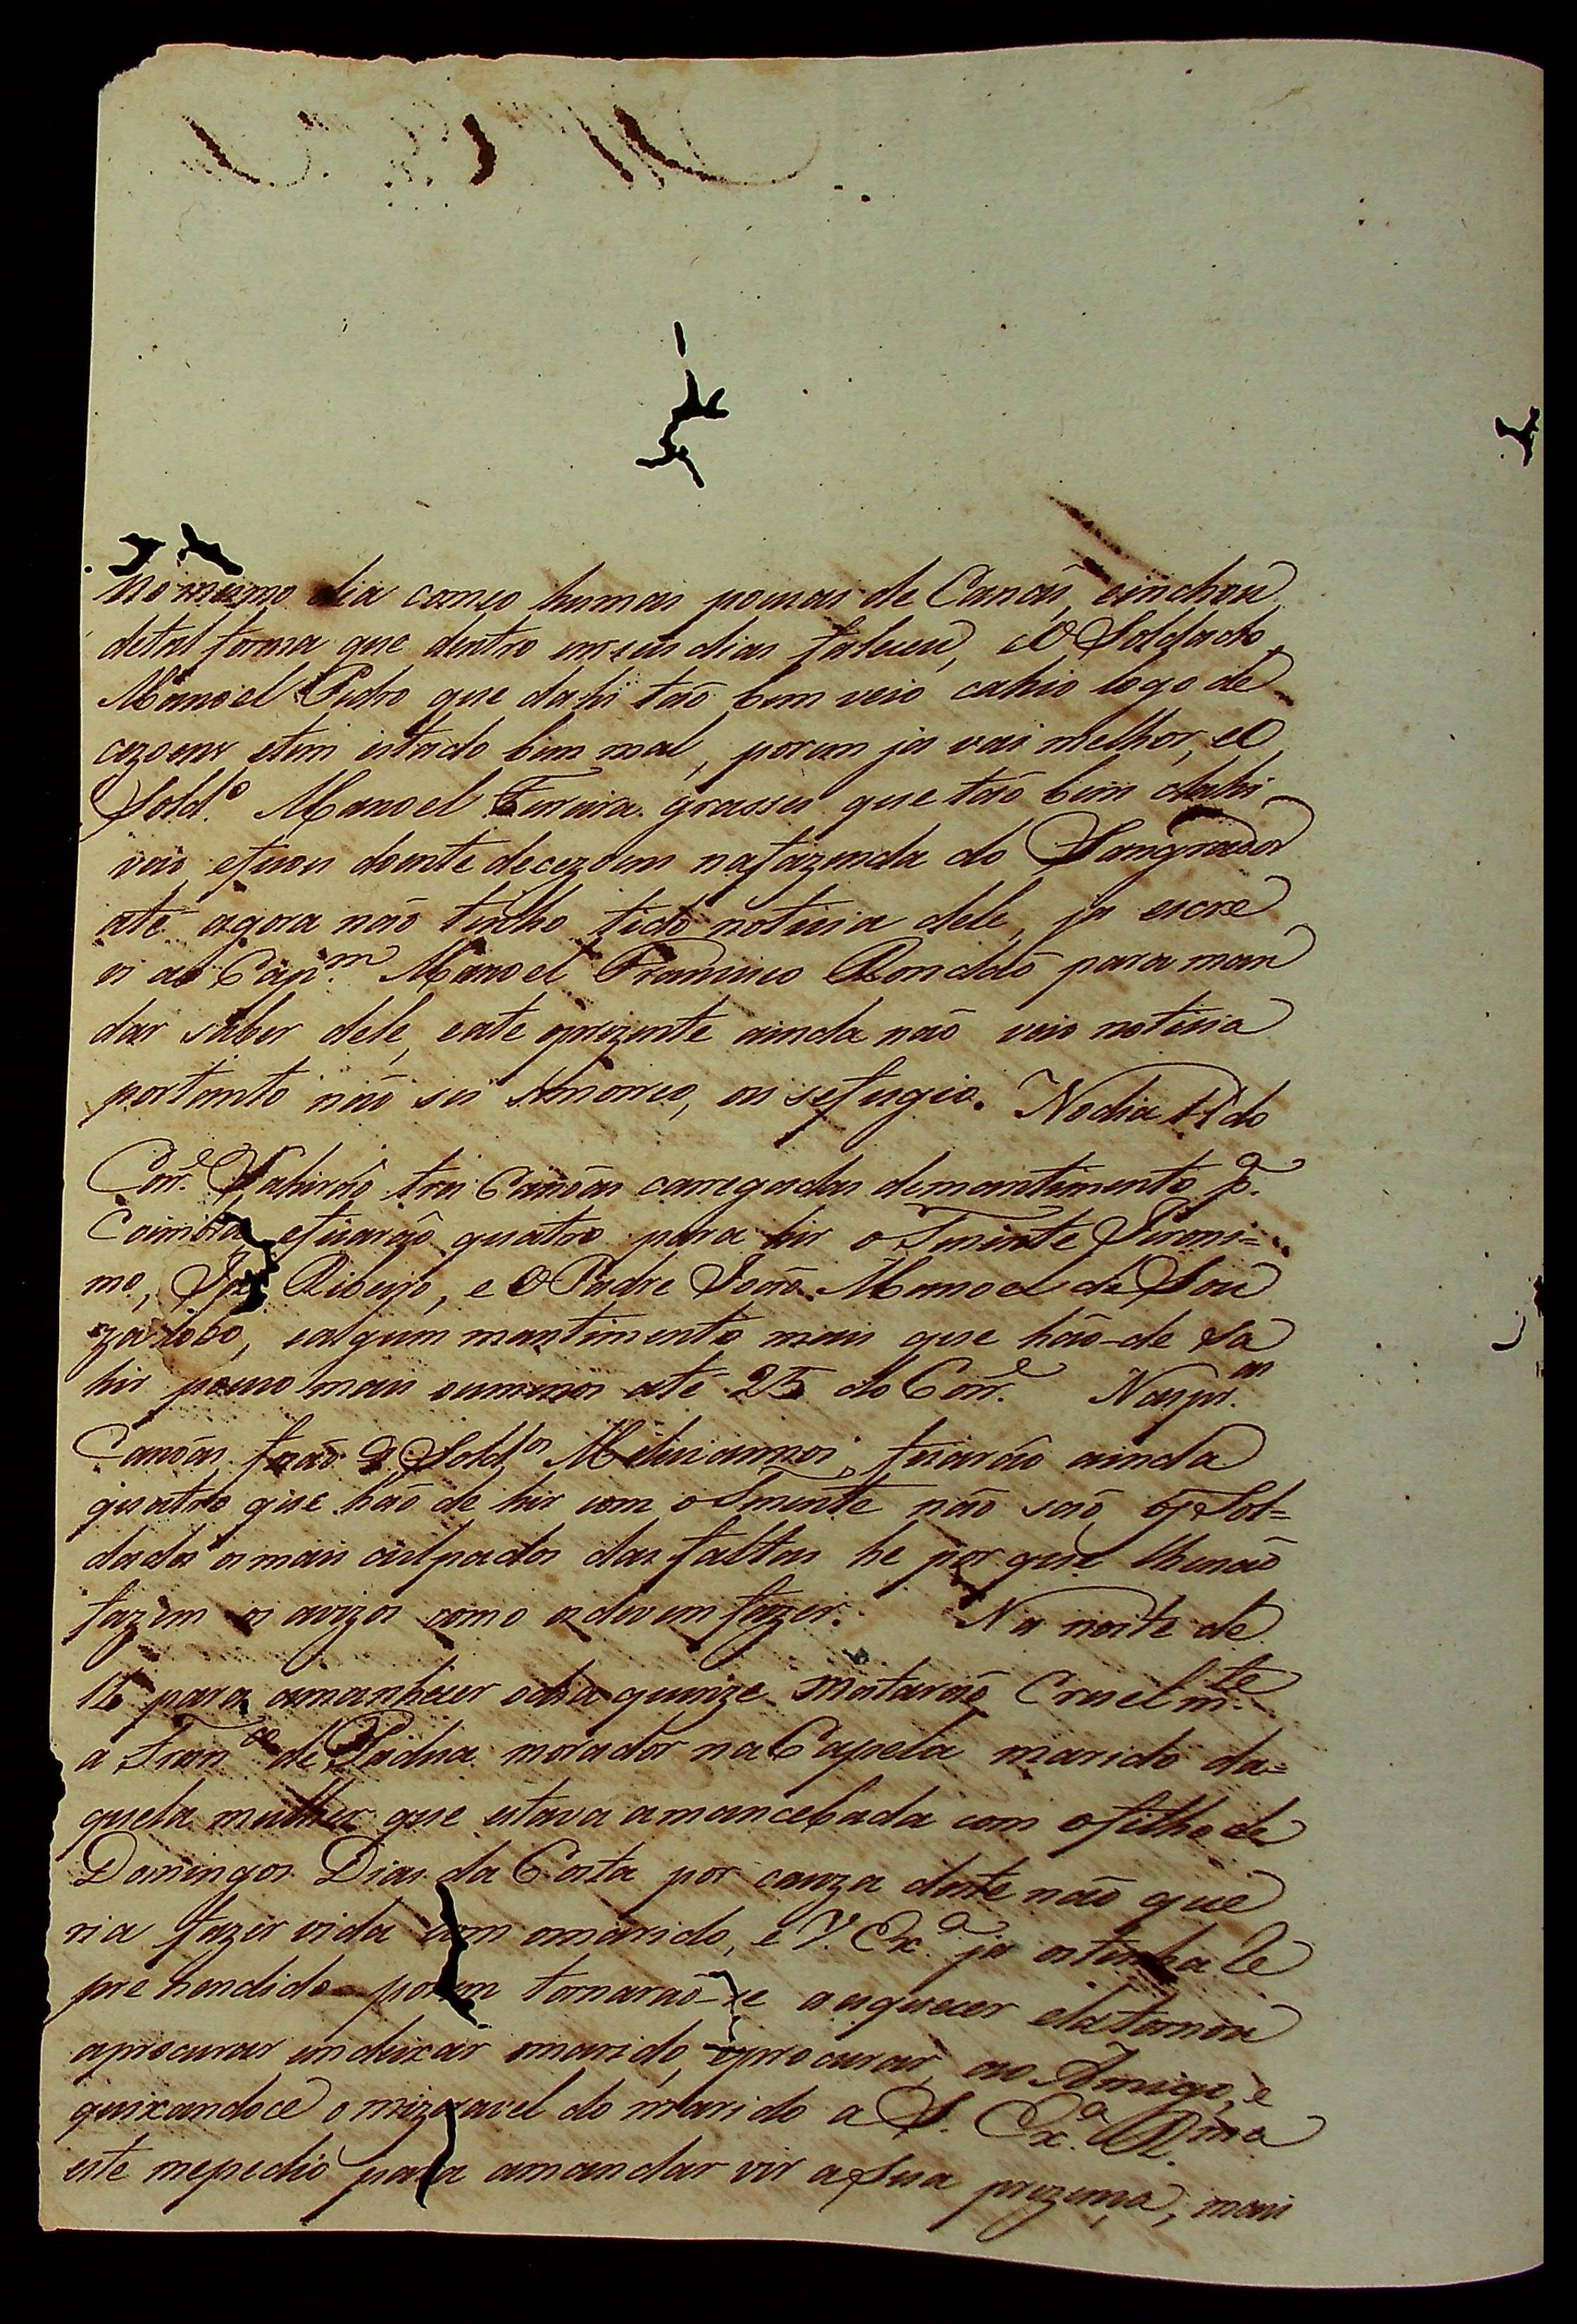 No mesmo dia comeo humas poucas de Canas, einchou
detal forma que dentro em seis dias faleceu, eO Soldado
Manoel Pedro que dahi tão bem veio cahio logo de
cezoens etem estado bem mal, porem ja vai melhor, eO
Sold.º Manoel Ferreira grasses que tão bem dahi
veio eficou doente decezoens nafazenda do Sangrador
até agora não tinho tido noticia dele, ja escre
vi ao Cap.m Manoel Francisco Rondão para man
dar saber dele, eate oprezente ainda não veio noticia
portanto não sei semorreo, ou sefugio. Nodia do
Corr.e Sahirão tres Canoas carregadas demantimento p.a
Coimbra eficarão quatro para hir oTenente Jironi=
mo, Ribeyro, e O Padre João Manoel de Sou
za Lobo, ealgum mantimento mais que hão-de sa
hir pouco mais oumenos até 25 do Corr.e Naspr.as
Canoas forão Sold.os Milicianos, ficarão ainda
quatro que hão de hir com oTenente não são os Sol=
dados osmais culpados das faltas he por que lhenão
fazem os avizos como odevem fazer. Na noite de
14 para amanhecer odia quinze matarão Cruelm.te
a Fran.co de Padua morador na Capela marido da=
quela mulher que estava amancebada com ofilho de
Domingos Dias da Costa por cauza deste não que
ria fazer vida com omarido, e V. Ex.a ja ostinha re
prehendido porem tornarão-se aesquecer elatornou
aprocurar emdeixar omarido, eprocurar, ao Amigo, e
queixandoce omizeravel do marido a S. Ex.a R.ma
este mepedio para amandar vir aSua prezença, mais